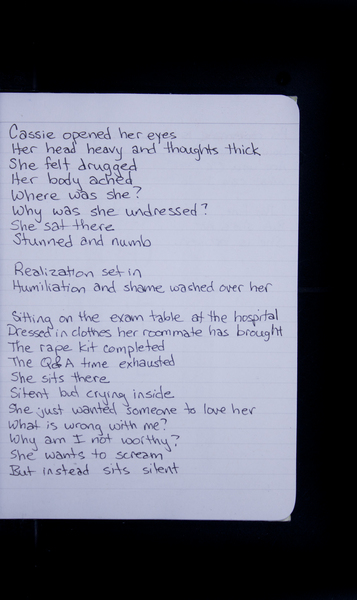 Cassie opened her eyes
Her head heavy and thoughts thick
She felt drugged
Her body ached
Where was she?
Why was she undressed?
She sat there
Stunned and numb
Realization set in
Humiliation and shame washed over her
Sitting on the exam table at the hospital
Dressed in clothes her roommate has brought
The rape kit completed
The Q&A time exhausted
She sits there
Silent but crying inside
She just wanted someone to love her
What is wrong with me?
Why am I not worthy?
She wants to scream
But instead sits silent